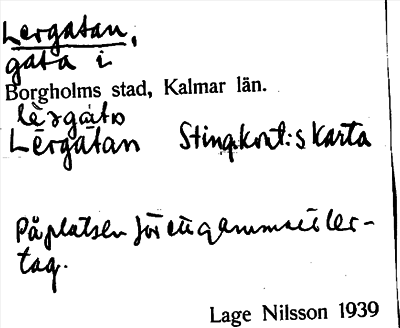 Lergatan,
gata i
Borgholms stad, Kalmar län.
Lērgātan Stingkont:s Karta
På platsen för ett gammalt ler-
tag.
Lage Nilsson 1939